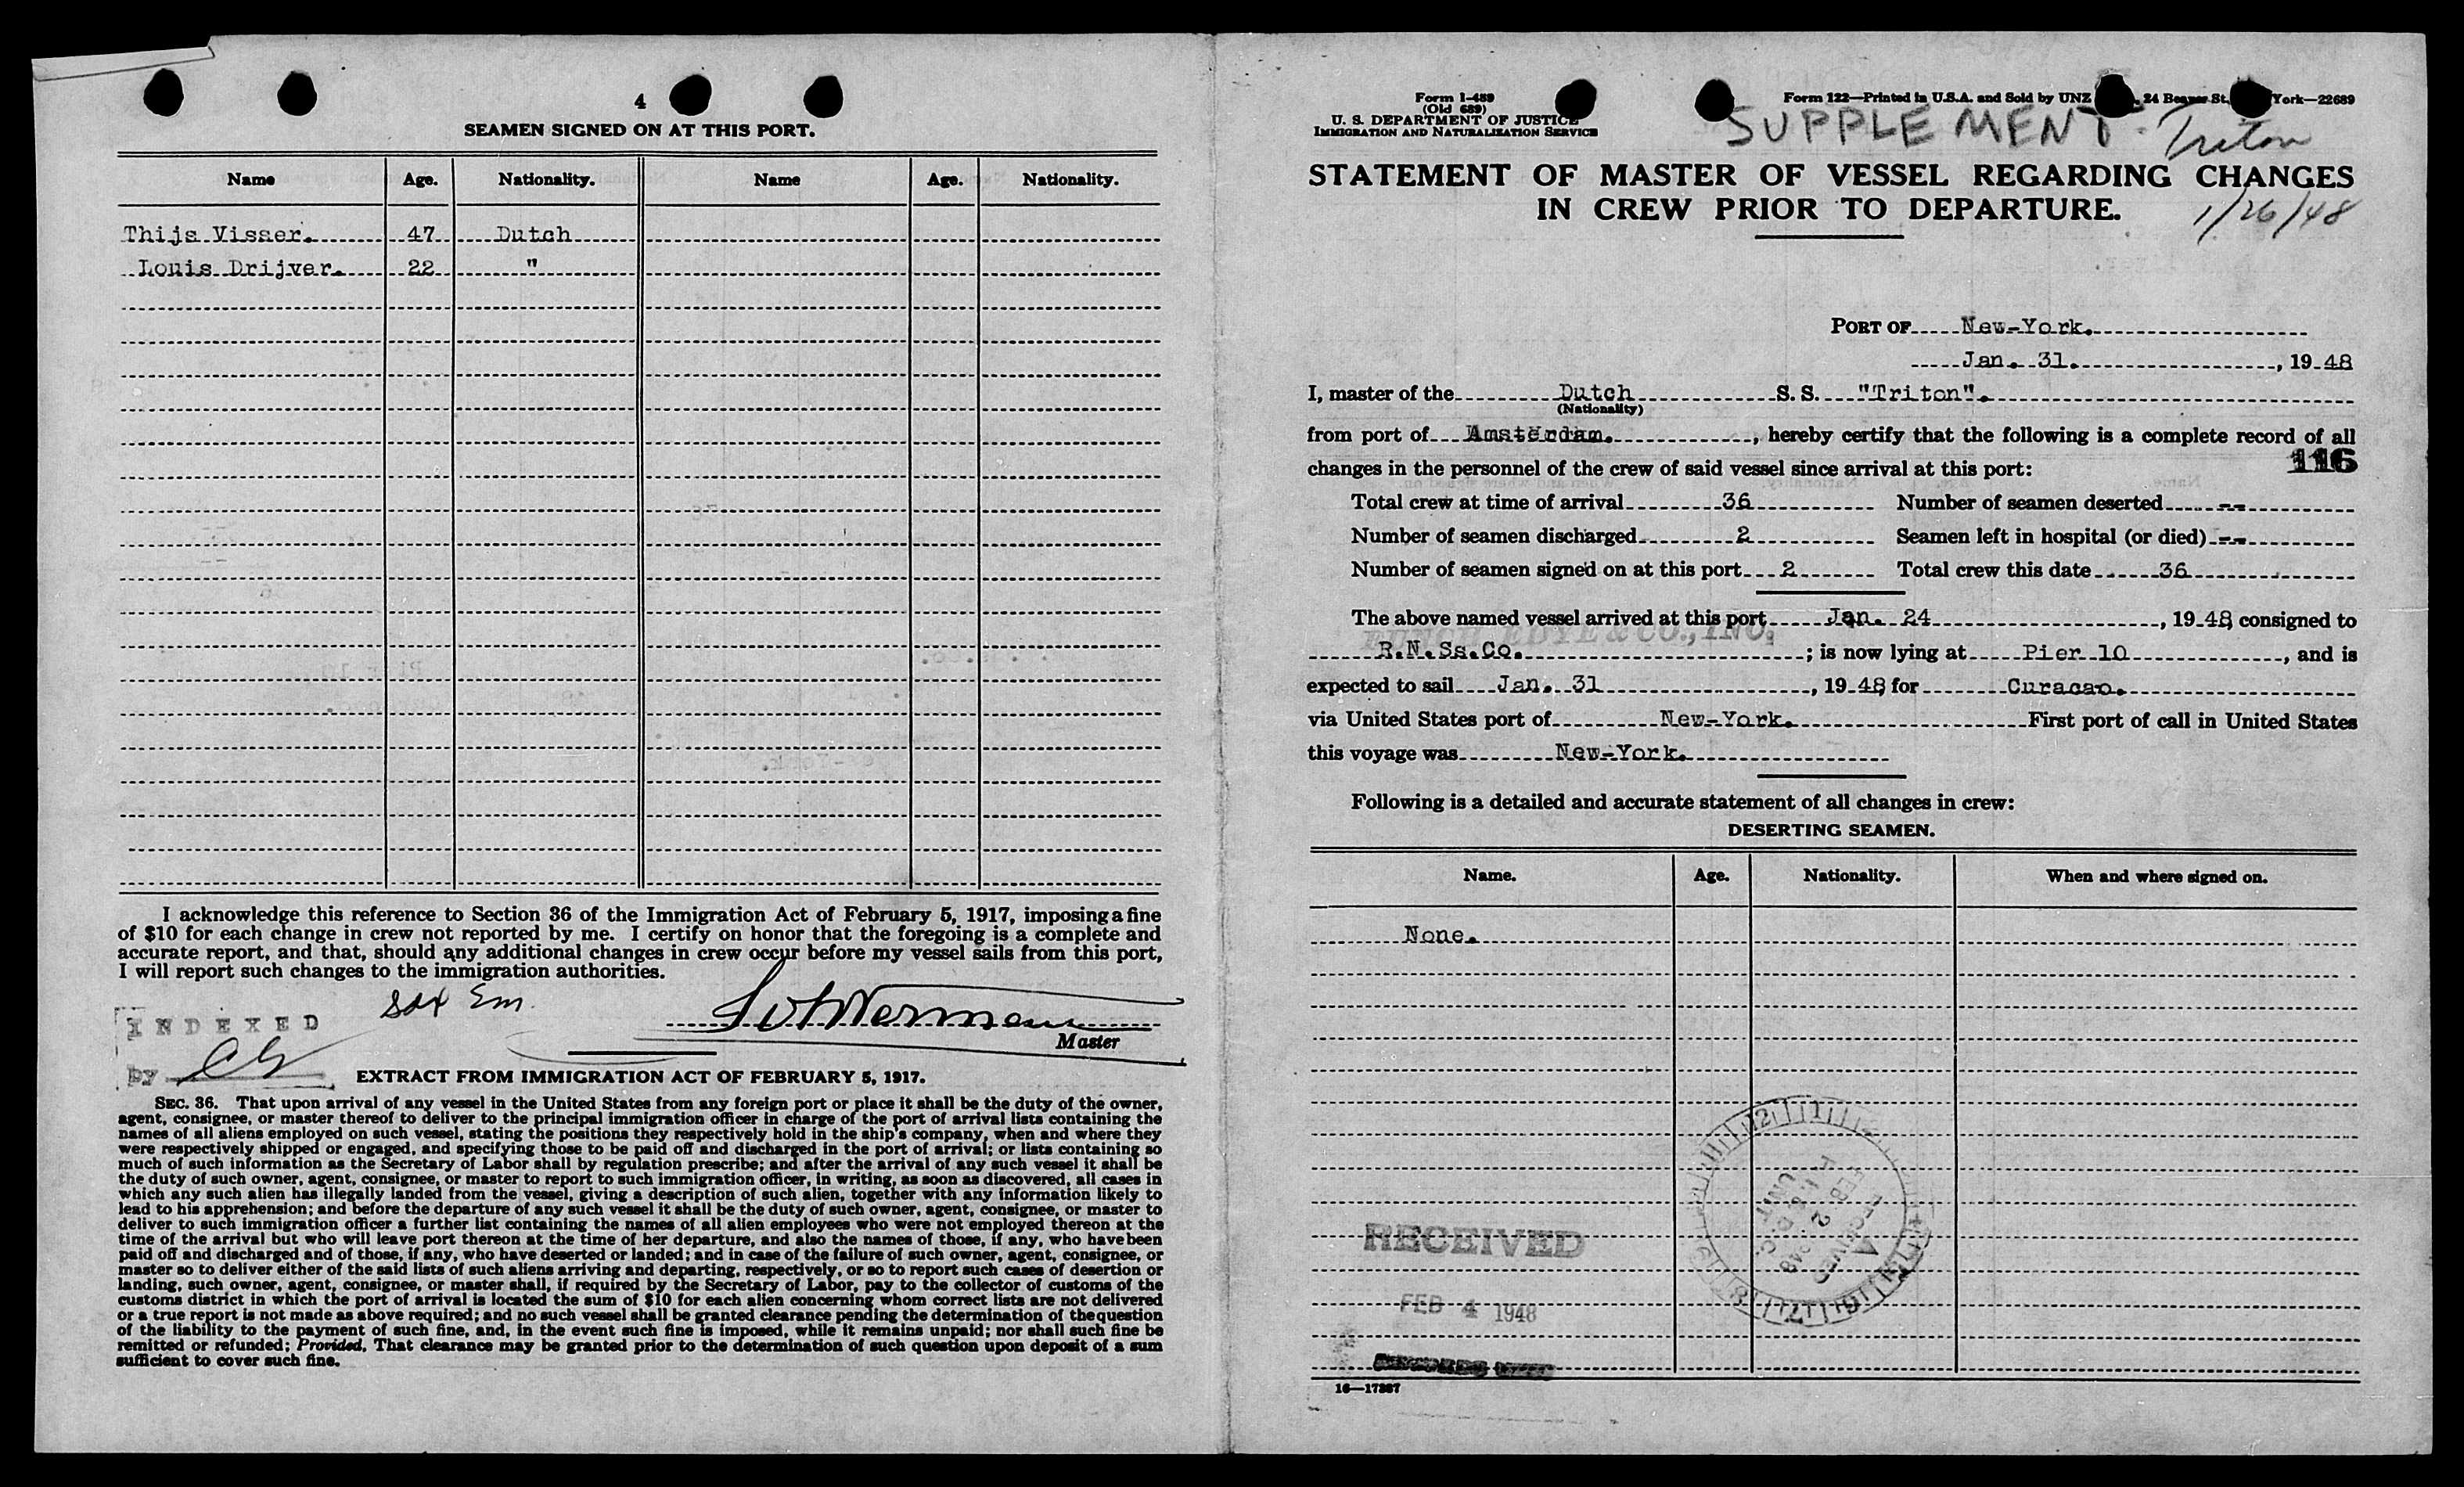 4
SEAMEN SIGNED ON AT THIS PORT.
Name Age. Nationality. Name Age. Nationality.
Thijs Visser. 47 Dutch
Louis Drijver. 22 "
I acknowledge this reference to Section 36 of the Immigration Act of February 5, 1917, imposing a fine
of $10 for each change in crew not reported by me. I certify on honor that the foregoing is a complete and
accurate report, and that, should any additional changes in crew occur before my vessel sails from this port,
I will report such changes to the immigration authorities.
INDEXED
by
Master
EXTRACT FROM IMMIGRATION ACT OF FEBRUARY 5, 1917.
SEC. 36. That upon arrival of any vessel in the United States from any foreign port or place it shall be the duty of the owner,
agent, consignee, or master thereof to deliver to the principal immigration officer in charge of the port of arrival lists containing the
names of all aliens employed on such vessel, stating the positions they respectively hold in the ship's company, when and where they
were respectively shipped or engaged, and specifying those to be paid off and discharged in the port of arrival; or lists containing so
much of such information as the Secretary of Labor shall by regulation prescribe; and after the arrival of any such vessel it shall be
the duty of such owner, agent, consignee, or master to report to such immigration officer, in writing, as soon as discovered, all cases in
which any such alien has illegally landed from the vessel, giving a description of such alien, together with any information likely to
lead to his apprehension; and before the departure of any such vessel it shall be the duty of such owner, agent, consignee, or master to
deliver to such immigration officer a further list containing the names of all alien employees who were not employed thereon at the
time of the arrival but who will leave port thereon at the time of her departure, and also the names of those, if any, who have been
paid off and discharged and of those, if any, who have deserted or landed; and in case of the failure of such owner, agent, consignee, or
master so to deliver either of the said lists of such aliens arriving and departing, respectively, or so to report such cases of desertion or
landing, such owner, agent, consignee, or master shall, if required by the Secretary of Labor, pay to the collector of customs of the
customs district in which the port of arrival is located the sum of $10 for each alien concerning whom correct lists are not delivered
or a true report is not made as above required; and no such vessel shall be granted clearance pending the determination of the question
of the liability to the payment of such fine, and, in the event such fine is imposed, while it remains unpaid; nor shall such fine be
remitted or refunded; Provided, That clearance may be granted prior to the determination of such question upon deposit of a sum
sufficient to cover such fine.
Form I-489
(Old 689)
U. S. DEPARTMENT OF JUSTICE
IMMIGRATION AND NATURALIZATION SERVICE
Form 122—Printed in U.S.A. and Sold by UNZ 24 Beaver St. York—22689
SUPPLEMENT Triton
STATEMENT OF MASTER OF VESSEL REGARDING CHANGES
IN CREW PRIOR TO DEPARTURE.
1/26/48
PORT OF New-York.
Jan. 31. , 19 48
I, master of the Dutch S. S. "Triton".
(Nationality)
from port of Amsterdam. , hereby certify that the following is a complete record of all
changes in the personnel of the crew of said vessel since arrival at this port:
116
Total crew at time of arrival 36 Number of seamen deserted --
Number of seamen discharged 2 Seamen left in hospital (or died) --
Number of seamen signed on at this port 2 Total crew this date 36
The above named vessel arrived at this port Jan. 24 , 19 48, consigned to
FUNCH, EDYE & CO., INC.
R.N.Ss.Co. ; is now lying at Pier 10 , and is
expected to sail Jan. 31 , 19 48, for Curacao.
via United States port of New-York. First port of call in United States
this voyage was New-York.
Following is a detailed and accurate statement of all changes in crew:
DESERTING SEAMEN.
Name. Age. Nationality. When and where signed on.
None.
RECEIVED
FEB 2 1948
RECEIVED
FEB 4 1948
16—17387